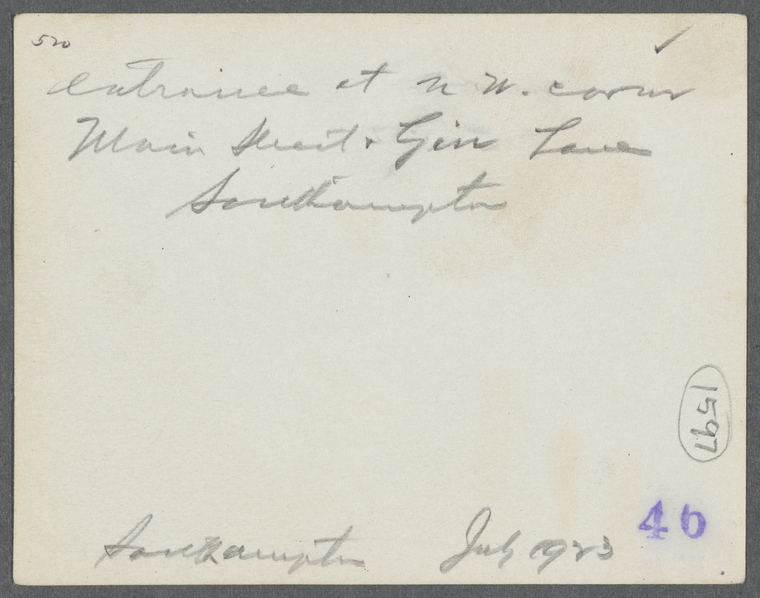 520 ✓
Entrance at N.W. corner
Main Street & Gin Lane
Southampton
1597
46
Southampton July 1923